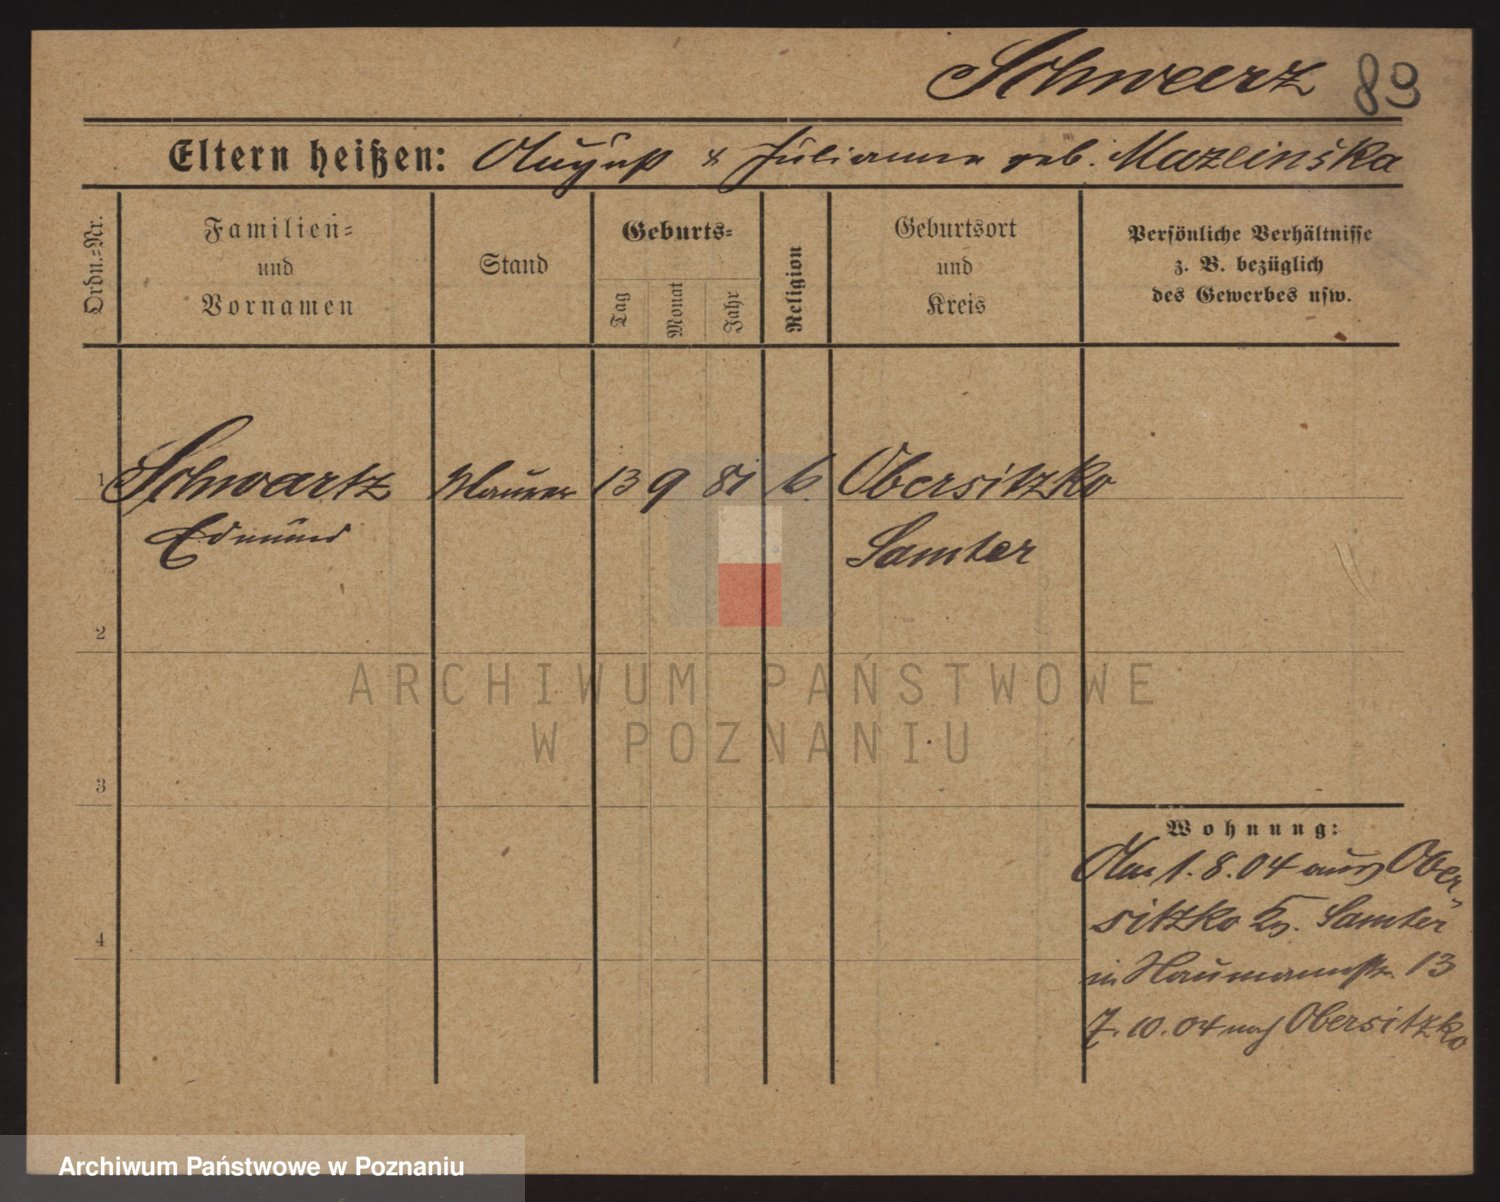 Schwarz 89
Eltern heißen: August & Julianna geb. Mazeinska
Ordn.-Nr.
Familien-
und
Vornamen
Stand
Geburts-
Tag
Monat
Jahr
Religion
Geburtsort
und
Kreis
Persönliche Verhältnisse
z. B. bezüglich
des Gewerbes usw.
1 Schwartz Maurer 13 9 81 k. Obersitzko
Edmund Samter
2
3
4
Wohnung:
Am 1.8.04 aus Ober-
sitzko Kr. Samter
in Naumannstr. 13
7.10.04 nach Obersitzko
ARCHIWUM PAŃSTWOWE
W POZNANIU
Archiwum Państwowe w Poznaniu